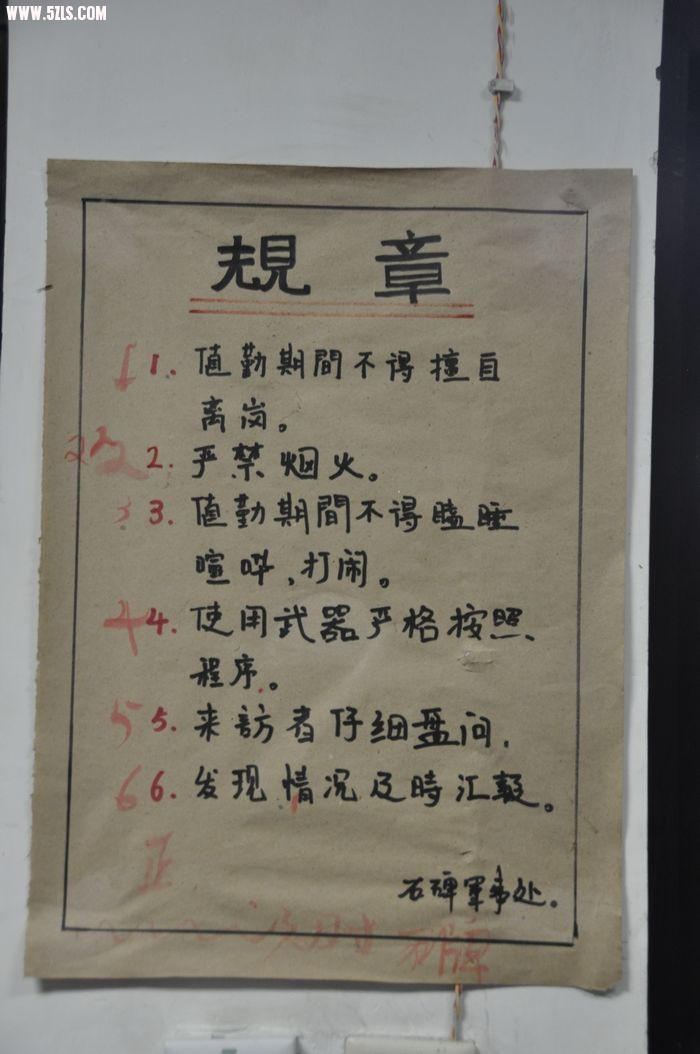 WWW.5ZLS.COM
規章
1. 值勤期間不得擅自
离岗。
2. 严禁烟火。
3. 值勤期間不得瞌睡
喧哗、打闹。
4. 使用武器严格按照
程序。
5. 来訪者仔细盘问.
6. 发现情况及時汇報。
石碑軍事处.
1
2
3
4
5
6
正
石牌